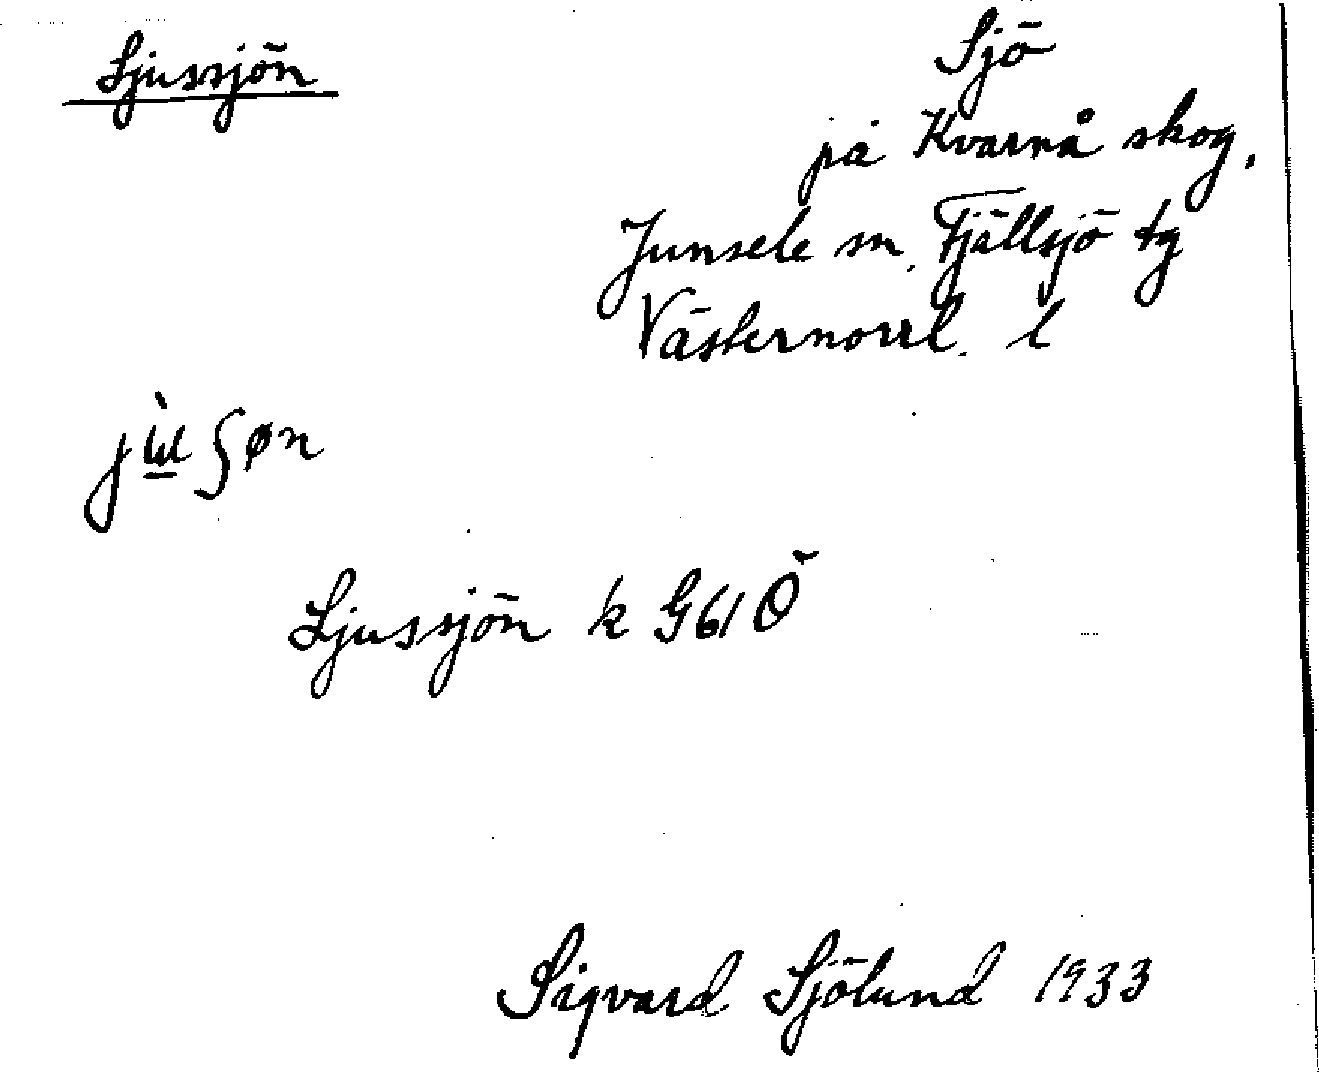 Ljussjön
Sjö
på Kvarnå skog,
Junsele sn, Fjällsjö tg
Västernorrl. l
Ljussjön k G61 Ö
Sigvard Sjölund 1933